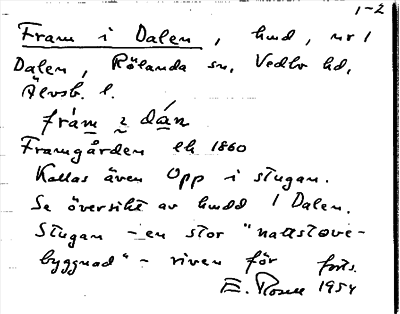 1-2
Fram i Dalen, hmd, nr 1
Dalen, Rölanda sn, Vedbo hd,
Älvsb. l.
fràm 2 dán
Framgården ek 1860
Kallas även Opp i stugan.
Se översikt av hmdd / Dalen.
Stugan - en stor "nattstove-
byggnad" - riven för forts.
E. Rosell 1954